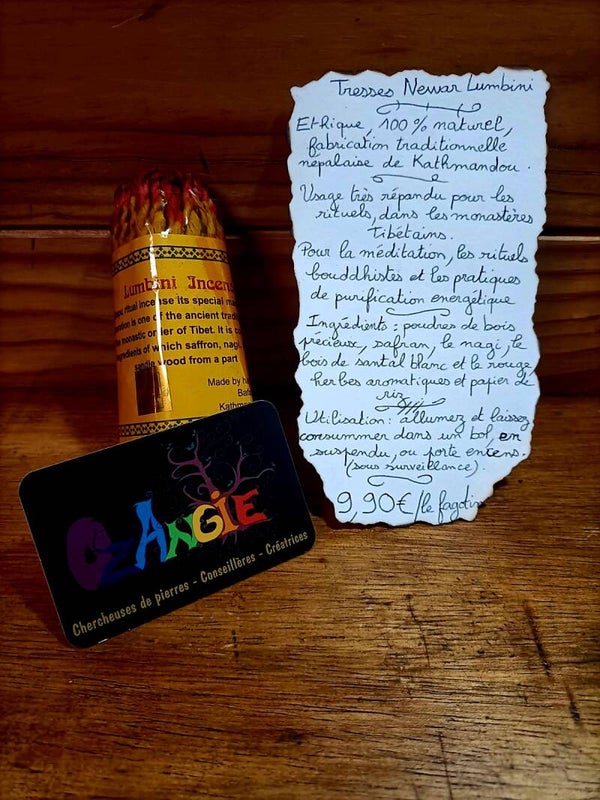 Tresses Newar Lumbini
Ethique, 100% naturel,
fabrication traditionnelle
népalaise de Kathmandou.
Usage très répandu pour les
rituels, dans les monastères
Tibétains.
Pour la méditation, les rituels
bouddhistes et les pratiques
de purification energétique
Ingrédients : poudres de bois
précieux, safran, le nagi, le
bois de santal blanc et le rouge,
herbes aromatiques et papier de
riz
Utilisation : allumez et laissez
consummer dans un bol, en
suspendu, ou porte encens.
(sous surveillance).
9,90€/le fagotin
Lumbini Incens
ritual incense its special ma
is one of the ancient trad
monastic order of Tibet. It is co
ingredients of which saffron, nagi,
wood from a part
Made by ha
Kathm
OZANGIE
Chercheuses de pierres - Conseillères - Créatrices